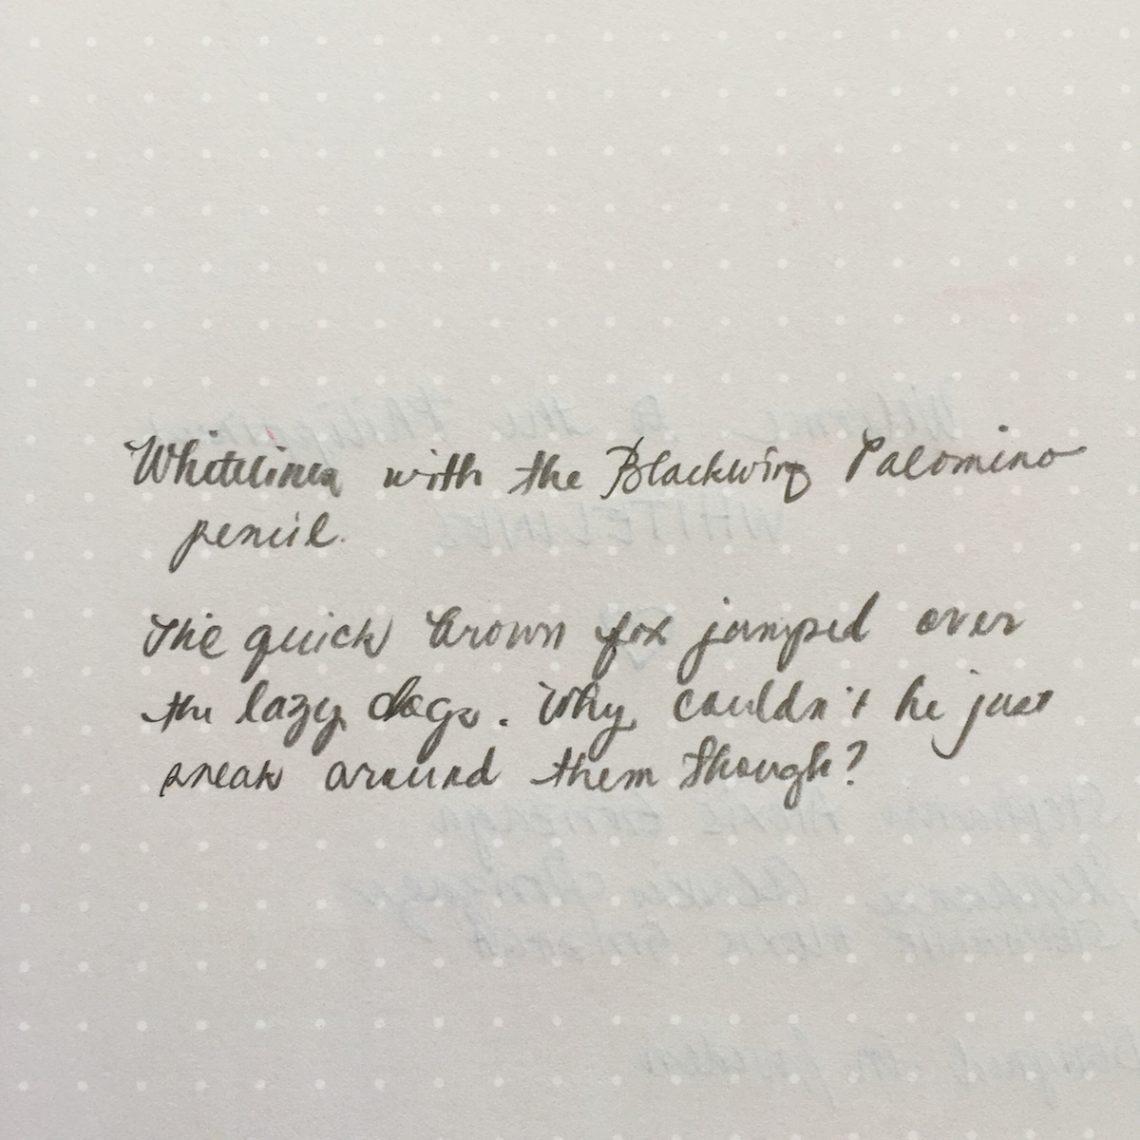 Whitelines with the Blackwing Palomino
pencil.
The quick brown fox jumped over
the lazy dogs. Why couldn't he just
sneak around them though?
Welcome to the Philippines
WHITELINES